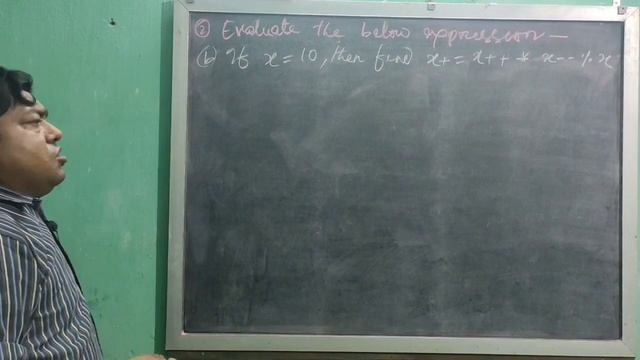 ② Evaluate the below expression —
(b) If x = 10, then find x += x++ * x-- % x